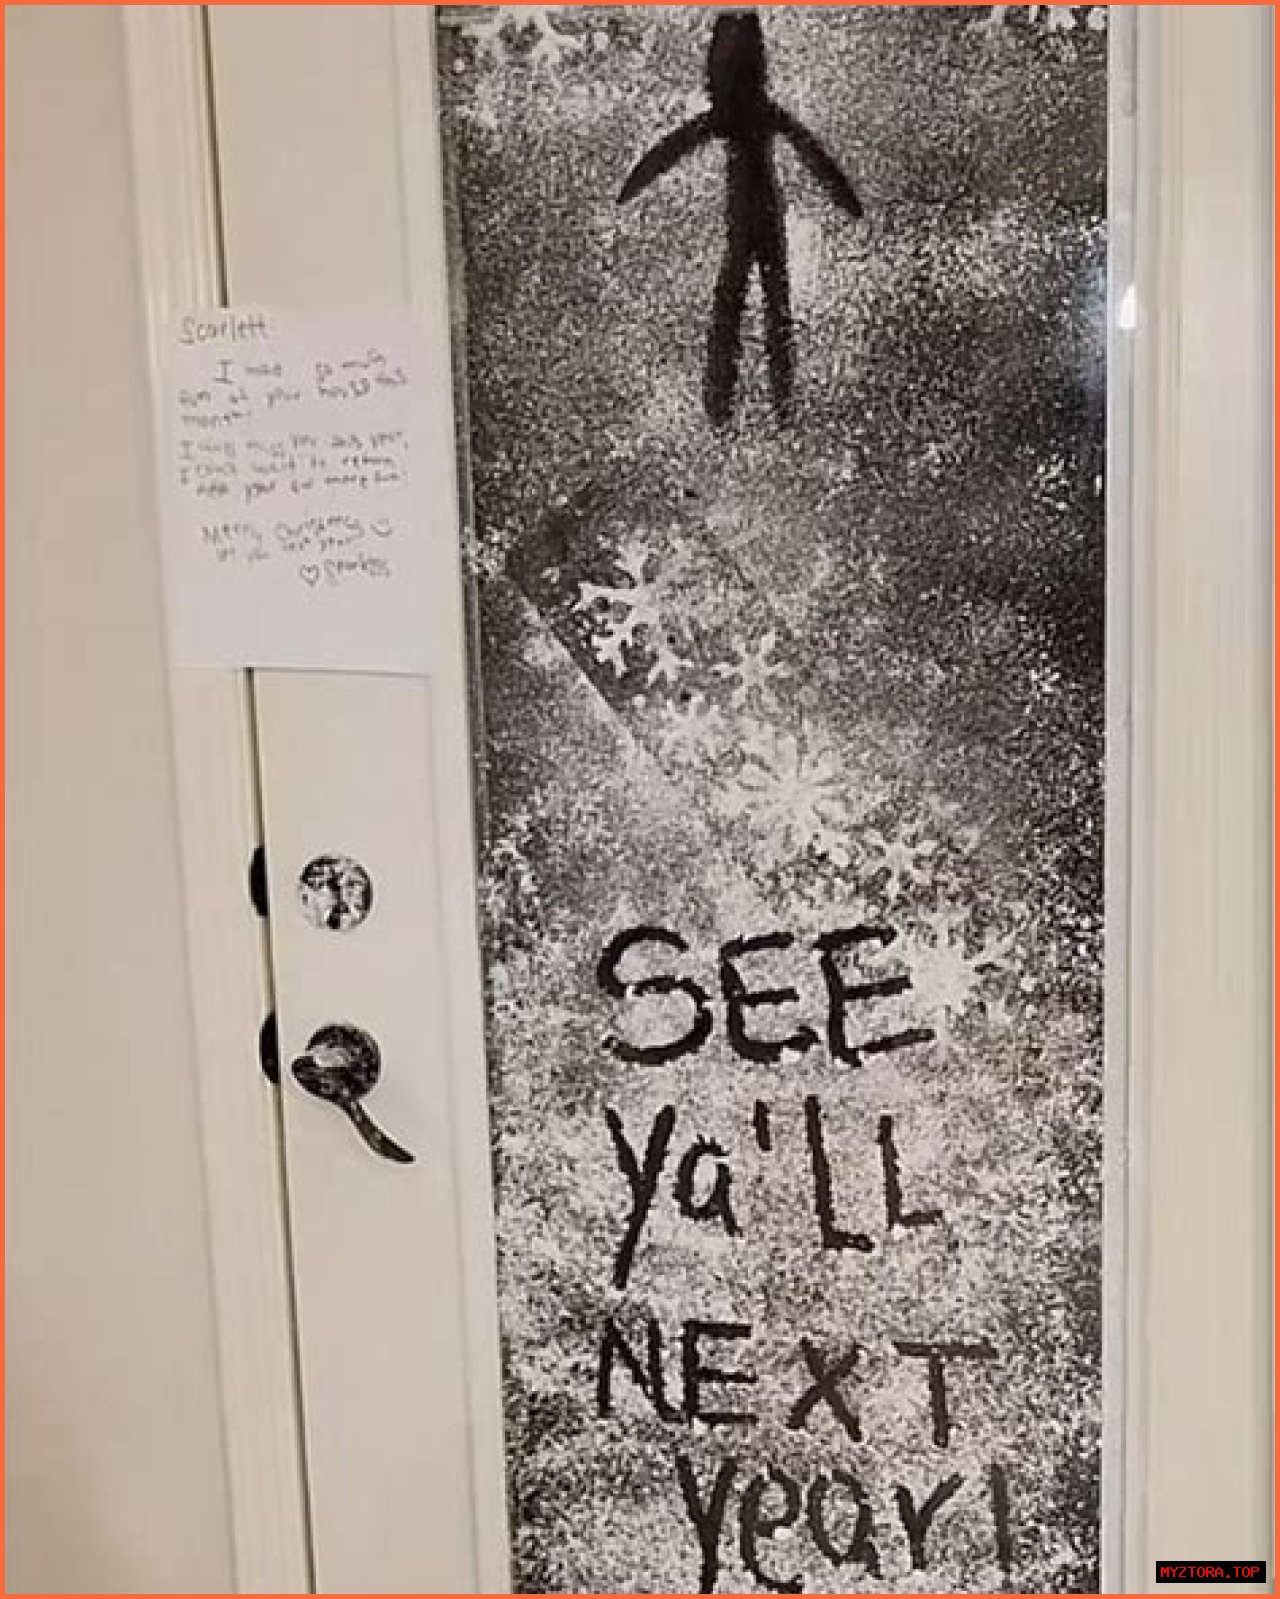 Scarlett
I had so much
fun at your house this
month!
I will miss you this year,
I can't wait to return
next year for more fun!
Merry Christmas
see you next year
SEE
Ya'LL
NEXT
Year!
MYZTORA.TOP